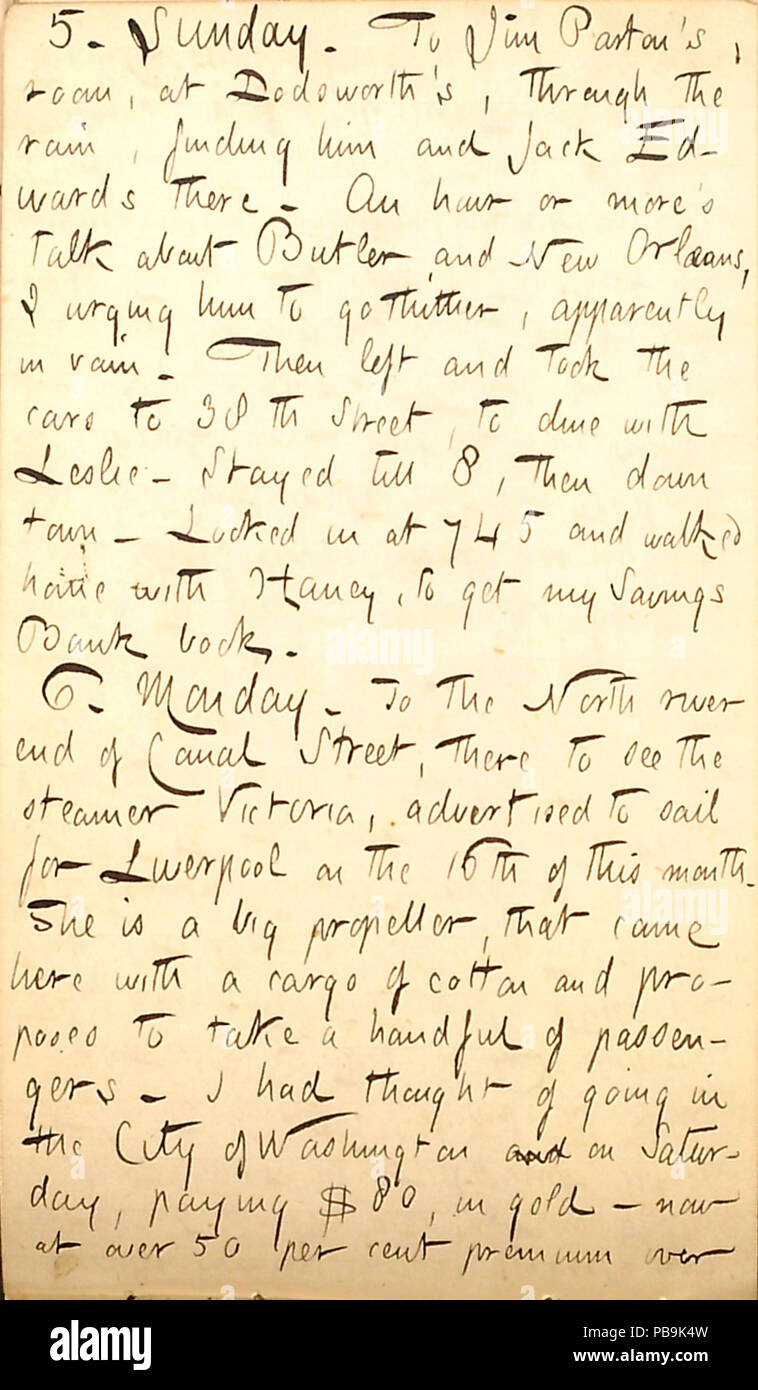 5. Sunday. To Jim Parton's,
room, at Dodsworth's, through the
rain, finding him and Jack Ed-
wards there. An hour or more's
talk about Butler and New Orleans,
I urging him to go thither, apparently
in vain. Then left and took the
cars to 38th Street, to dine with
Leslie. Stayed till 8, then down
town. Looked in at 745 and walked
home with Haney, to get my Savings
Bank book.
6. Monday. To the North river
end of Canal Street, there to see the
steamer Victoria, advertised to sail
for Liverpool on the 16th of this month.
She is a big propeller, that came
here with a cargo of cotton and pro-
poses to take a handful of passen-
gers. I had thought of going in
the City of Washington and on Satur-
day, paying $80, in gold — now
at over 50 per cent premium over
alamy
Image ID: PB9K4W
www.alamy.com